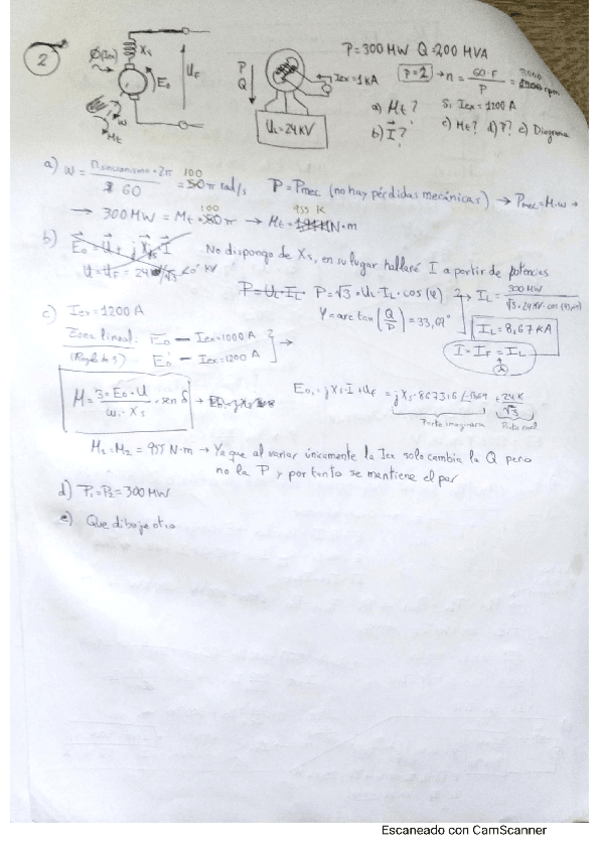 2
Φ(Iex) Xs E₀ UF
ω
Mt
P
Q
Iex=1kA
UL=24KV
P=300MW Q=200 MVA
p=2 → n = 60·F / P = 3000 rpm
a) Mt? Si Iex=1200 A
b) I⃗? c) Mt? d) P? e) Diagrama
a) ω = nsincronismo·2π / 60 = 100π rad/s P=Pmec (no hay pérdidas mecánicas) → Pmec=M·ω →
→ 300MW = Mt·100π → Mt= 955 KN·m
b) E₀ = U + jXs·I No dispongo de Xs, en su lugar hallaré I a partir de potencias
U=UF= 24/√3 ∠0° KV
P=UL·IL· P=√3·UL·IL·cos(φ) → IL= 300MW / √3·24KV·cos(33,69)
φ=arctan(Q/P)=33,69° IL=8,67KA
I=IF=IL
c) Iex=1200A
Zona lineal: E₀ — Iex=1000A
(Regla de 3) E₀' — Iex=1200A →
M= 3·E₀·U / ω·Xs · sen δ → E₀₁=jXs·I+UF =jXs·8673,16∠-33,69 + 24K/√3
Parte imaginaria Parte real
M₁=M₂=955 N·m → Ya que al variar únicamente la Iex solo cambia la Q pero
no la P y por tanto se mantiene el par
d) P₁=P₂=300MW
e) Que dibuje otro
Escaneado con CamScanner